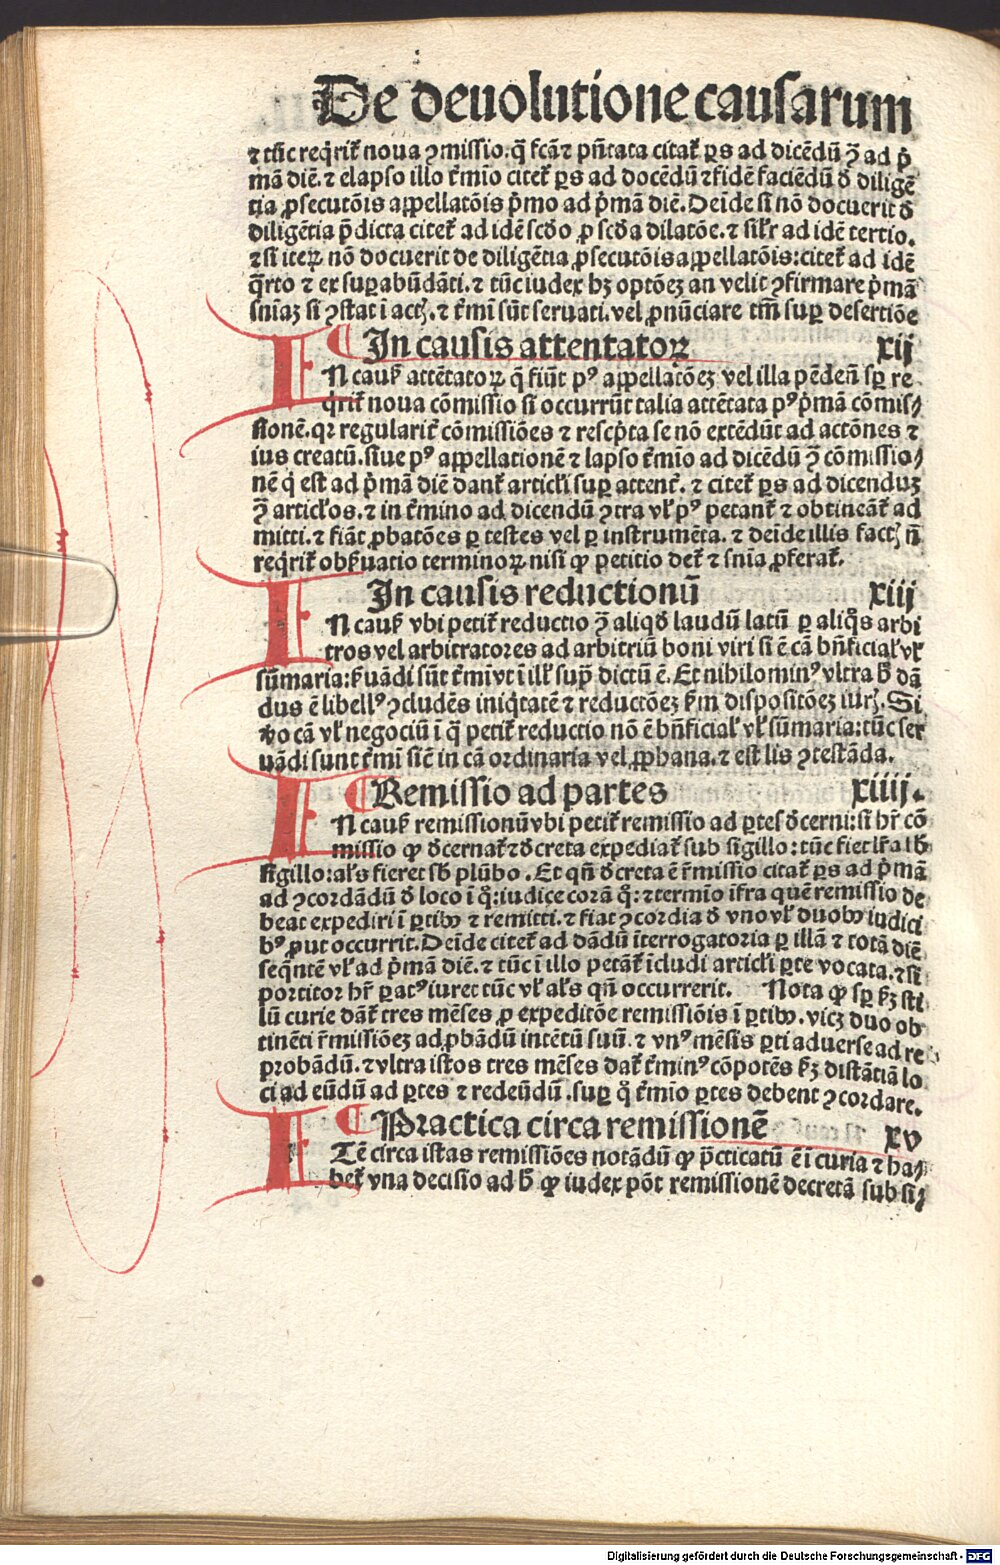 De deuolutione causarum
⁊ tūc reqͥrit̃ noua ꝯmissio. q̄ fcā ⁊ pñtata citat̃ ꝑs ad dicēdū ꝯ̄ ad p̄
mā diē. ⁊ elapso illo t̃mīo citet̃ ꝑs ad docēdū ⁊ fidē faciēdū ð diligē
tia ꝓsecutōis appellatōis p̄mo ad p̄mā diē. Deīde si nō docuerit ð
diligētia p̄dicta citet̃ ad idē scðo ꝓ scða dilatōe. ⁊ sil̃r ad idē tertio.
⁊ si iteꝝ nō docuerit de diligētia ꝓsecutōis appellatōis: citet̃ ad idē
q̄rto ⁊ ex suꝑabūdāti. ⁊ tūc iudex hꝫ optōeꝫ an velit ꝯfirmare p̄mā
sniaꝫ si ꝯstat ī actꝭ. ⁊ t̃mī sūt seruati. vel ꝓnūciare tm̄ suꝑ desertiōe
¶ In causis attentatoꝝ xij
IN cauẞ attētatoꝝ q̄ fiūt pꝰ appellatōeꝫ vel illa pēdeñ sꝑ re
qͥrit̃ noua cōmissio si occurrūt talia attētata pꝰ p̄mā cōmis⸗
sionē. qꝛ regularit̃ cōmissiōes ⁊ rescp̄ta se nō extēdūt ad actōnes ⁊
ius creatū. siue pꝰ appellationē ⁊ lapso t̃mīo ad dicēdū ꝯ̄ cōmissio⸗
nē q̄ est ad p̄mā diē dant̃ articl̃i suꝑ attent̃. ⁊ citet̃ ꝑs ad dicenduꝫ
ꝯ̄ articl̃os. ⁊ in t̃mino ad dicendū ꝯtra vl̃ pꝰ petant̃ ⁊ obtineāt̃ ad
mitti. ⁊ fiāt ꝓbatōes ꝑ testes vel ꝑ instrumēta. ⁊ deīde illis factꝭ ñ
reqͥrit̃ obẞuatio terminoꝝ. nisi ꝙ petitio det̃ ⁊ snīa ꝓferat̃.
In causis reductionū xiij
IN cauẞ vbi petit̃ reductio ꝯ̄ aliqð laudū latū ꝑ aliqͦs arbi
tros vel arbitratores ad arbitriū boni viri si ē cā bñficial̃ vl̃
sūmaria: ẞuādi sūt t̃mī vt ī ill̃ sup̄ dictū ē. Et nihilominꝰ vltra h̄ dā
dus ē libellꝰ ꝯcludēs iniq̄tatē ⁊ reductōeꝫ ẞm dispositōeꝫ iurꝭ. Si
v̄o cā vl̃ negociū ī q̄ petit̃ reductio nō ē bñficial̃ vl̃ sūmaria: tūc ser
uādi sunt t̃mī sic̄ in cā ordinaria vel ꝓphana. ⁊ est lis ꝯtestāda.
¶ Remissio ad partes xiiij.
IN cauẞ remissionū vbi petit̃ remissio ad ꝑtes ðcerni: si hr̃ cō
missio ꝙ ðcernat̃ ⁊ ðcreta expediat̃ sub sigillo: tūc fiet lr̃a sb̄
sigillo: al̃s fieret sb̄ plūbo. Et qñ ðcreta ē r̄missio citat̃ ꝑs ad p̄mā
ad ꝯcordādū ð loco ī q̊: iudice corā q̊: ⁊ termīo īfra quē remissio de
beat expediri ī ꝑtibꝰ ⁊ remitti. ⁊ fiat ꝯcordia ð vno vl̃ duobꝰ iudici
bꝰ ꝓut occurrit. Deīde citet̃ ad dādū īterrogatoria ꝑ illā ⁊ totā diē
seq̄ntē vl̃ ad p̄mā diē. ⁊ tūc ī illo petāt̃ īcludi articl̃i ꝑte vocata. ⁊ si
portitor hr̃ ꝑatꝰ iuret tūc vl̃ al̃s qñ occurrerit. Nota ꝙ sꝑ ẞꝫ sti
lū curie dāt̃ tres mēses ꝓ expeditōe remissiōis ī ꝑtibꝰ. vicꝫ duo ob
tinēti r̄missiōeꝫ ad ꝓbādū intētū suū. ⁊ vnꝰ mēsis ꝑti aduerse ad re
probādū. ⁊ vltra istos tres mēses dat̃ t̃minꝰ cōpotēs ẞꝫ distātiā lo
ci ad eūdū ad ꝑtes ⁊ redeūdū. suꝑ q̊ t̃mīo ꝑtes debent ꝯcordare.
¶ Practica circa remissionē xv
ITē circa istas remissiōes notādū ꝙ p̄cticatū ē ī curia ⁊ ha⸗
bet̃ vna decisio ad h̄ ꝙ iudex pōt remissionē decretā sub si⸗
Digitalisierung gefördert durch die Deutsche Forschungsgemeinschaft - DFG